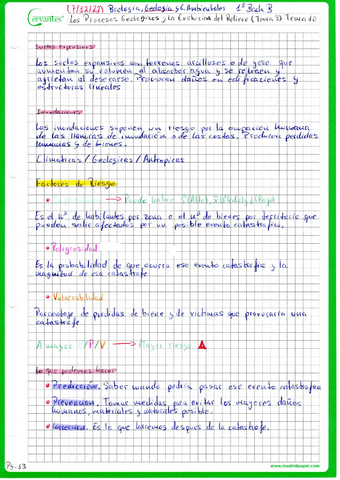 (7/12/22) Biología, Geología y C. Ambientales 1º Bach B
Cervantes
Los Procesos Geológicos y la Evolución del Relieve (Tema 3) Tema 10
Suelos expansivos
Los suelos expansivos son terrenos arcillosos o de yeso que
aumentan su volumen al absorber agua y se retraen y
agrietan al desecarse. Producen daños en edificaciones y
estructuras lineales
Inundaciones
Las inundaciones suponen un riesgo por la ocupación humana
de las llanuras de inundación o de la costas. Producen perdidas
humanas y de bienes.
Climáticas / Geológicas / Antrópicas
Factores de Riesgo
Puede haber (Alta), (Media) y (Baja)
Es el nº de habitantes por zona o el nº de bienes por territorio que
pueden salir afectados por un posible evento catastrófico.
• Peligrosidad
Es la probabilidad de que ocurra ese evento catastrófico y la
magnitud de esa catástrofe
• Vulnerabilidad
Porcentaje de perdidas de biene y de victimas que provocaria una
catástrofe
A mayor /P/V → Mayor riesgo
Lo que podemos hacer
• Predicción. Saber cuando podria pasar ese evento catastrofico
• Prevención. Tomar medidas para evitar los mayores daños
humanos, materiales y naturales posible.
• Corrección. Es lo que haremos después de la catástrofe.
Pg. 13
www.madridpapel.com